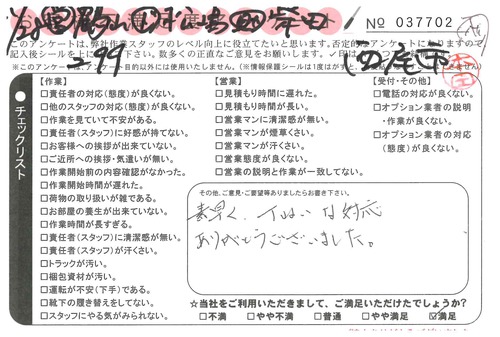 No 037702
このアンケートは、弊社作業スタッフのレベル向上に役立てたいと思います。否定的なアンケートになりますので、
記入後シールを上に
※このアンケートは、アンケート目的以外には使用いたしません。
チェックリスト
【作業】
□責任者の対応(態度)が良くない。
□他のスタッフの対応(態度)が良くない。
□作業を見ていて不安がある。
□責任者(スタッフ)に好感が持てない。
□お客様への挨拶が出来ていない。
□ご近所への挨拶・気遣いが無い。
□作業開始前の内容確認がなかった。
□作業開始時間が遅れた。
□荷物の取り扱いが雑である。
□お部屋の養生が出来ていない。
□作業時間が長すぎる。
□責任者(スタッフ)に清潔感が無い。
□責任者(スタッフ)が汗くさい。
□トラックが汚い。
□梱包資材が汚い。
□運転が不安(下手)である。
□靴下の履き替えをしてない。
□スタッフにやる気がみられない。
【営業】
□見積もり時間に遅れた。
□見積もり時間が長い。
□営業マンに清潔感が無い。
□営業マンが煙草くさい。
□営業マンが汗くさい。
□営業態度が良くない。
□営業の説明と作業が一致してない。
【受付・その他】
□電話の対応が良くない。
□オプション業者の説明
・作業が良くない。
□オプション業者の対応
(態度)が良くない。
その他、ご意見・ご要望等ありましたらお書き下さい。
素早く、ていねいな対応
ありがとうございました。
☆当社をご利用いただきまして、ご満足いただけたでしょうか?
□不満 □やや不満 □普通 □やや満足 ☑満足